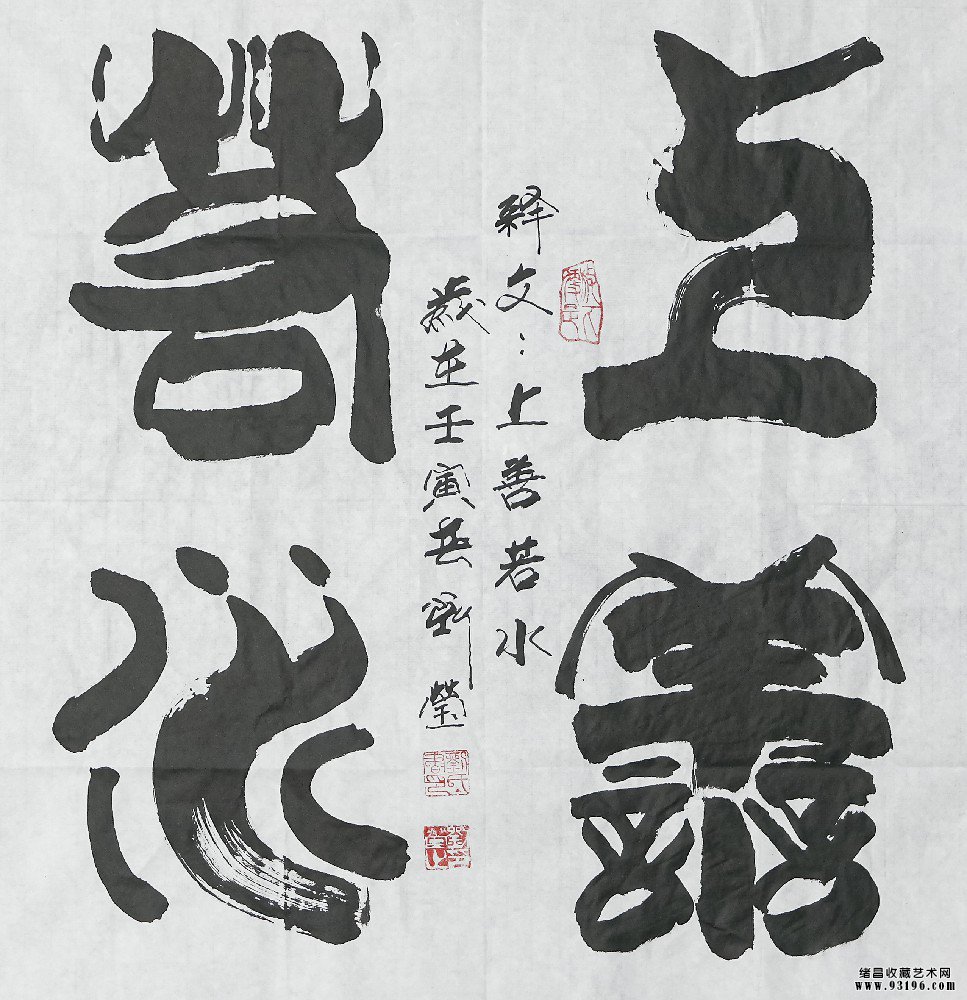 上善
若水
釋文：上善若水
歲在壬寅春劉瑩
绪昌收藏艺术网
www.93196.com